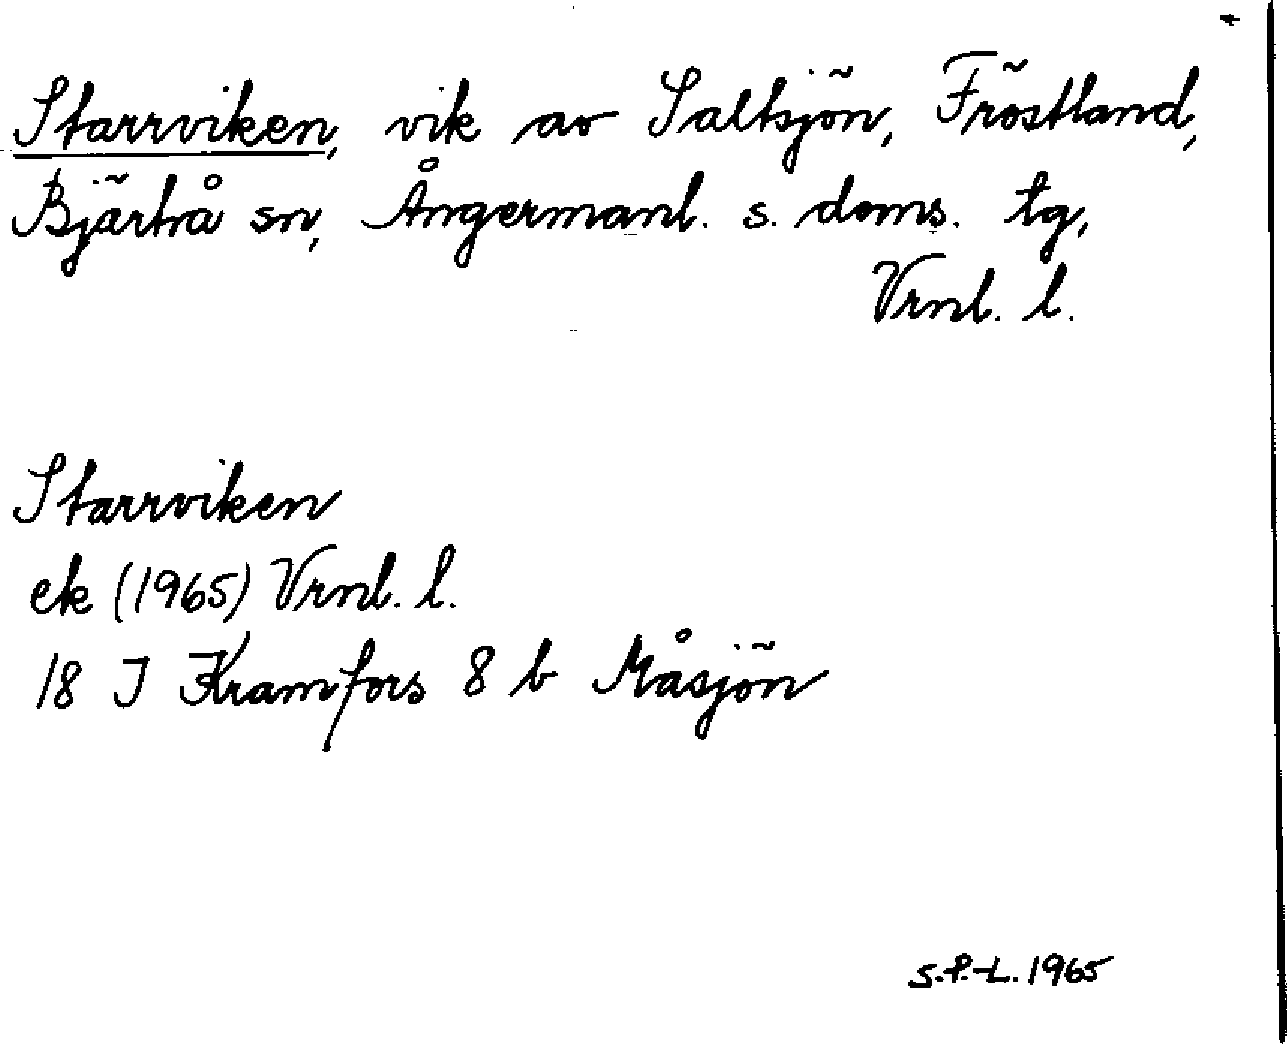 Starrviken, vik av Saltsjön, Fröstland,
Bjärtrå sn, Ångermanl. s. doms. tg,
Vrnl. l.
Starrviken
ek (1965) Vrnl. l.
18 J Kramfors 8 b Måsjön
S.P.-L. 1965